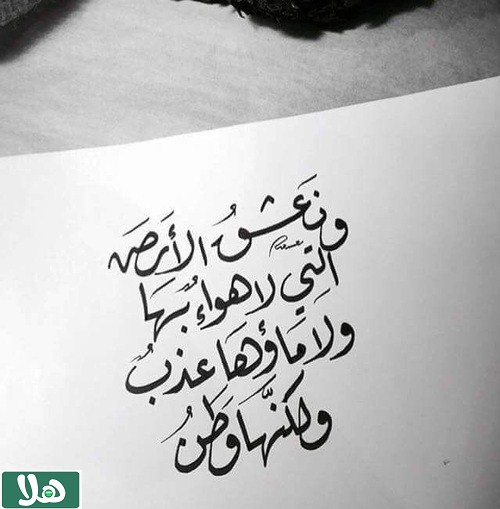 ونَعشقُ الأَرضَ
التِي لا هواءٌ بهَا
ولا مَاؤهَا عذبٌ
ولكنّهَا وَطنُ
هلا